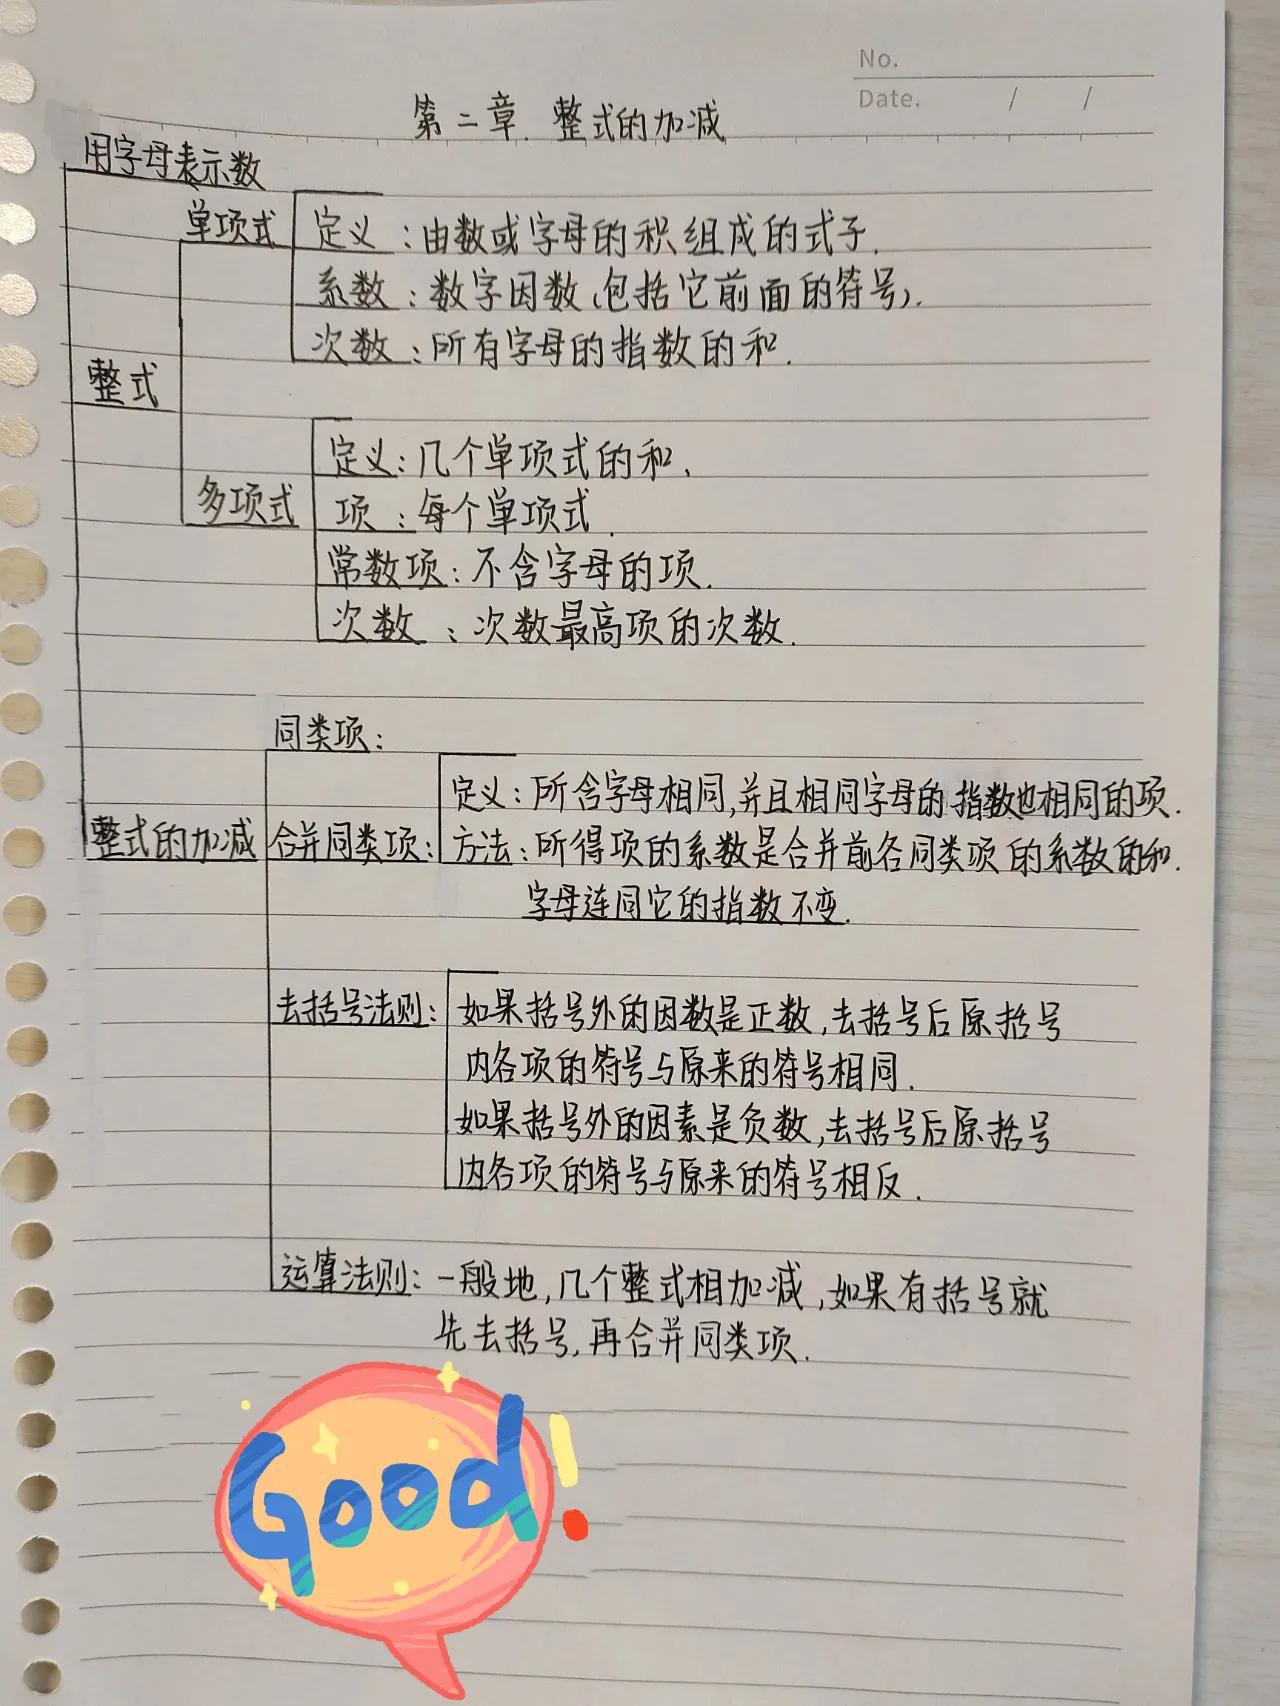 No.
Date. / /
第二章.整式的加减
用字母表示数
单项式
定义:由数或字母的积组成的式子.
系数:数字因数(包括它前面的符号).
次数:所有字母的指数的和.
整式
定义:几个单项式的和.
多项式
项:每个单项式.
常数项:不含字母的项.
次数:次数最高项的次数.
同类项:
定义:所含字母相同,并且相同字母的指数也相同的项.
整式的加减
合并同类项:
方法:所得项的系数是合并前各同类项的系数的和.
字母连同它的指数不变.
去括号法则:如果括号外的因数是正数,去括号后原括号
内各项的符号与原来的符号相同.
如果括号外的因素是负数,去括号后原括号
内各项的符号与原来的符号相反.
运算法则:一般地,几个整式相加减,如果有括号就
先去括号,再合并同类项.
Good!